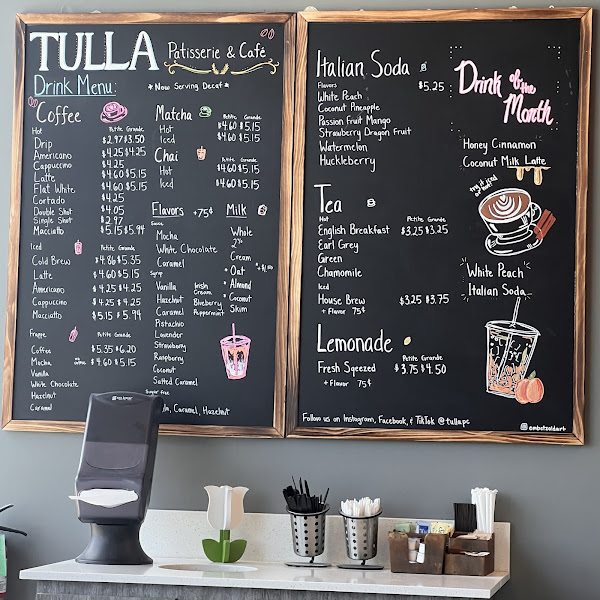 TULLA Patisserie & Café
Drink Menu: *Now Serving Decaf*
Coffee
Hot Petite Grande
Drip $2.97 $3.50
Americano $4.25 $4.25
Cappuccino $4.25
Latte $4.60 $5.15
Flat White $4.60 $5.15
Cortado $4.25
Double Shot $4.05
Single Shot $2.97
Macciatto $5.15 $5.94
Iced Petite Grande
Cold Brew $4.86 $5.35
Latte $4.60 $5.15
Americano $4.25 $4.25
Cappuccino $4.25 $4.25
Macciatto $5.15 $5.94
Frappe Petite Grande
Coffee $5.35 $6.20
Mocha $4.60 $5.15
Vanilla
White Chocolate
Hazelnut
Caramel
Matcha Petite Grande
Hot $4.60 $5.15
Iced $4.60 $5.15
Chai Petite Grande
Hot $4.60 $5.15
Iced $4.60 $5.15
Flavors +75¢
Sauce
Mocha
White Chocolate
Caramel
Syrup
Vanilla
Hazelnut
Caramel
Pistachio
Lavender
Strawberry
Raspberry
Coconut
Salted Caramel
Irish
Cream
Blueberry
Peppermint
Sugar free
Caramel, Hazelnut
Milk
Whole
2%
Cream
• Oat
• Almond
• Coconut
Skim
+$1.50
Italian Soda
Flavors $5.25
White Peach
Coconut Pineapple
Passion Fruit Mango
Strawberry Dragon Fruit
Watermelon
Huckleberry
Tea
Hot Petite Grande
English Breakfast $3.25 $3.25
Earl Grey
Green
Chamomile
Iced
House Brew $3.25 $3.75
+ Flavor 75¢
Lemonade
Petite Grande
Fresh Sqeezed $3.75 $4.50
+ Flavor 75¢
Follow us on Instagram, Facebook, & TikTok @tulla.pc
Drink of the Month
Honey Cinnamon
Coconut Milk Latte
try it iced
or hot!
White Peach
Italian Soda